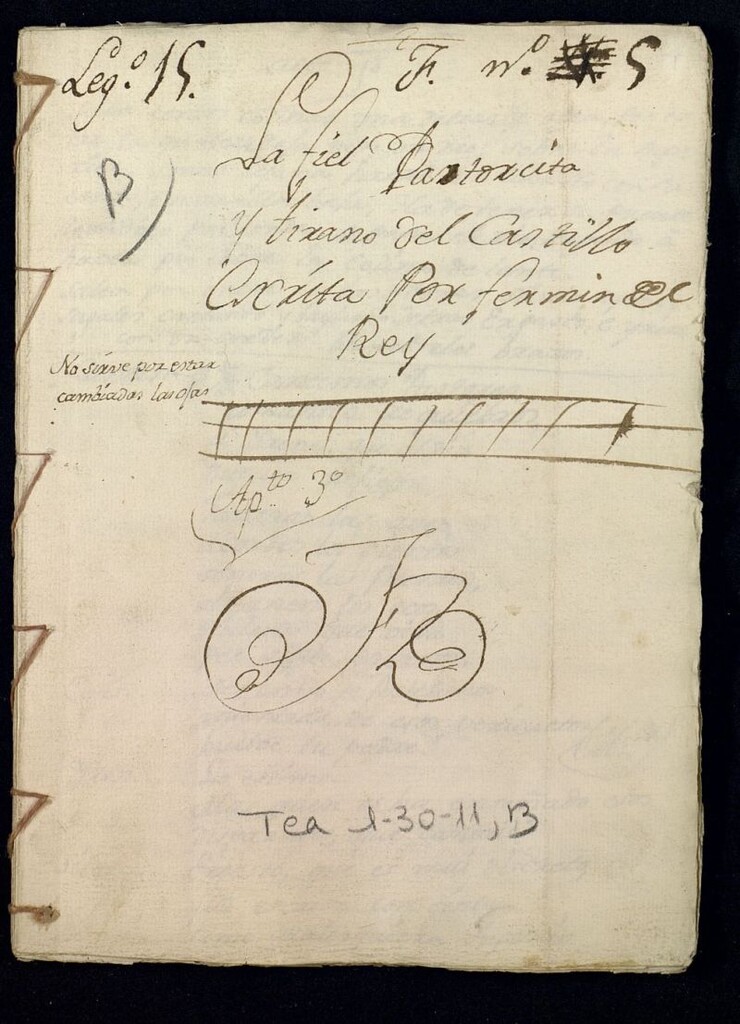 Leg.º 15. F. n.º 5
B
La fiel Pastorcita
y tirano del Castillo
Escrita Por fermin del
Rey
No sirve por estar
cambiadas las ojas
Ap.to 3º
Tea 1-30-11, B